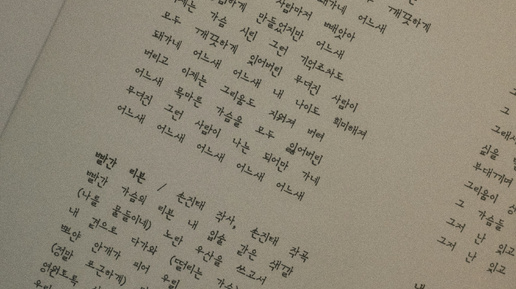 사람마저 빼앗아
돼가네 어느새
이제는 가슴 만들었지만 어느새
모두 시린 그런 기억조차도
돼가네 깨끗하게 잊어버린 무뎌진 사람이
버리고 어느새 어느새 내 나이도 희미해져
어느새 이제는 그리움도 지워져 버려
무뎌진 목마른 가슴을 모두 잃어버린
어느새 그런 사람이 나는 되어만 가네
어느새 어느새 어느새 어느새
빨간 리본 / 손진태 작사, 손진태 작곡
빨간 가슴의 리본 내 입술 같은 색깔
(나를 물들이네) 노란 우산을 쓰고서
내 곁으로 다가와 (떨리는 가슴)
뽀얀 안개가 피어 우린
(정말 포근하게)
영원토록
그대
삶을
부대끼며
그리움이
그 가슴을
그저 난 잊고
그저 난 잊고